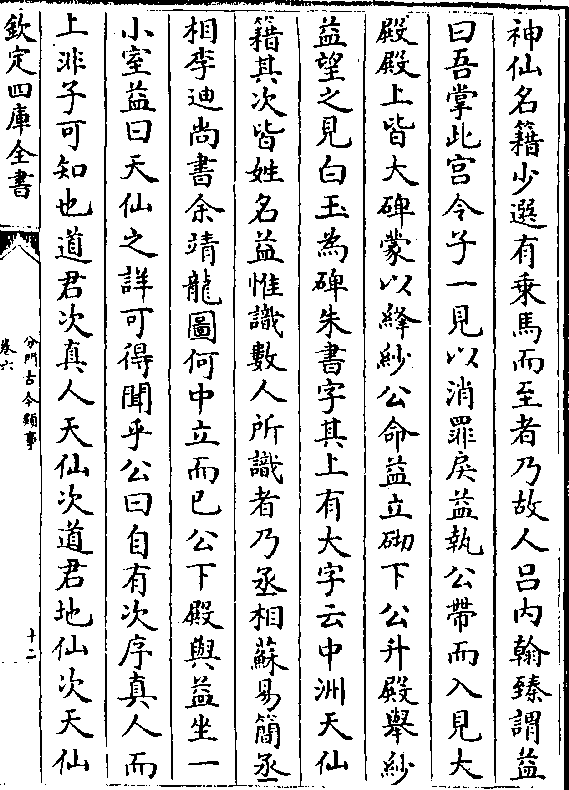 神仙名籍少選有乗馬而至者乃故人吕内翰臻謂益
曰吾掌此宫令子一見以消罪戾益執公帶而入見大
殿殿上皆大碑蒙以絳紗公命益立砌下公升殿舉紗
益望之見白玉為碑朱書字其上有大字云中洲天仙
籍其次皆姓名益惟識數人所識者乃丞相蘇易簡丞
相李迪尚書余靖龍圖何中立而已公下殿與益坐一
小室益曰天仙之詳可得聞乎公曰自有次序真人而
上非子可知也道君次真人天仙次道君地仙次天仙
欽定四庫全書
分門古今類事
卷六
十二